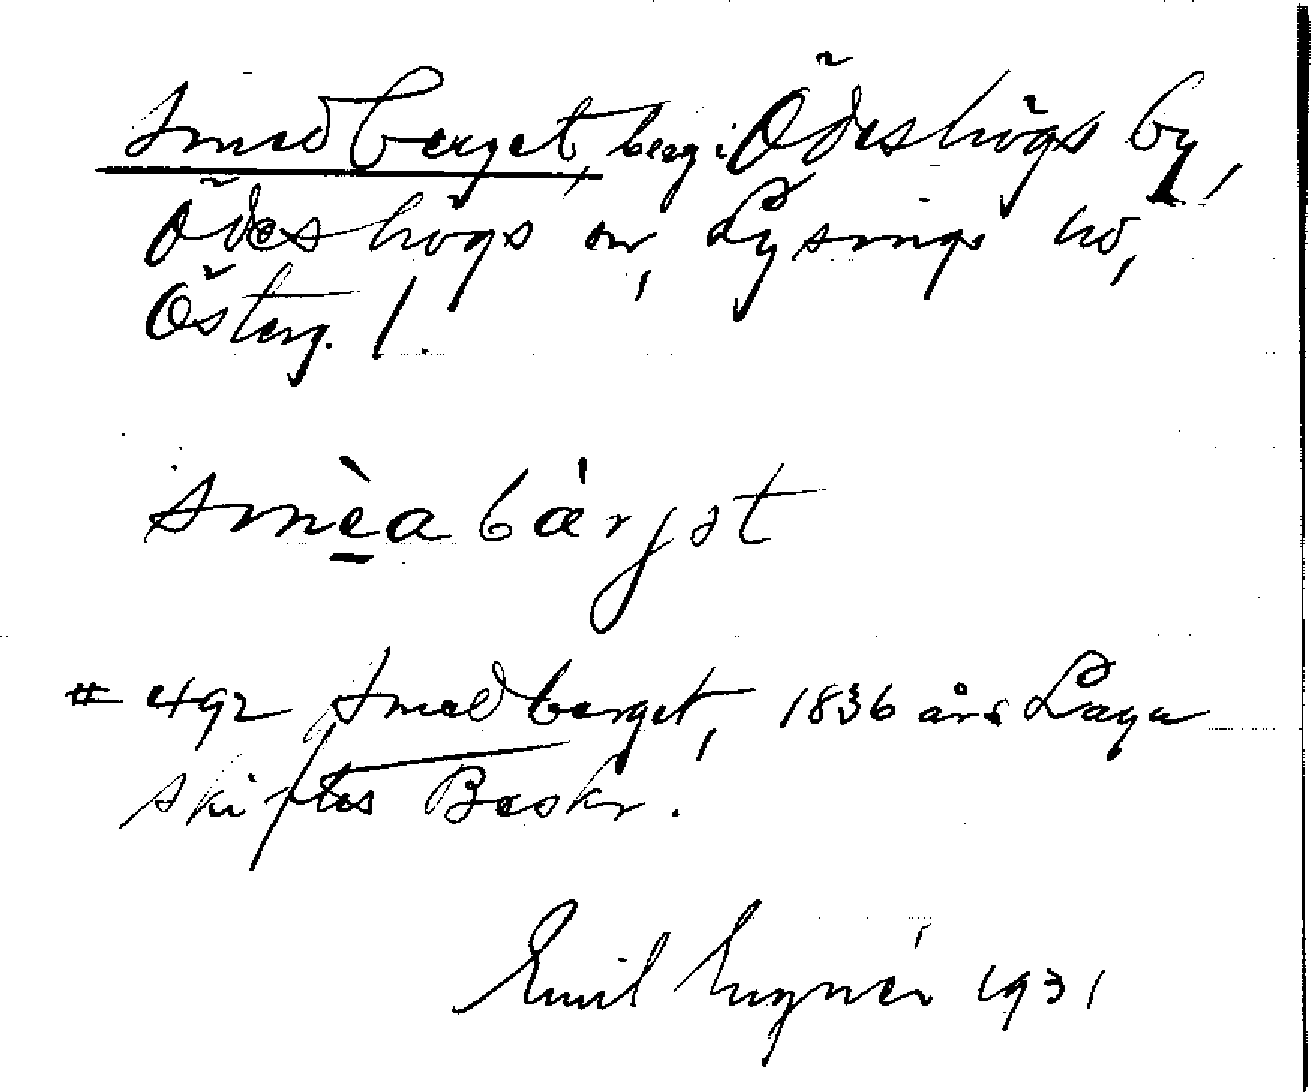 Smedberget, berg i Ödeshögs by,
Ödeshögs sn, Lysings hd,
Österg. l.
smèa bä́rjət
# 492 Smedberget, 1836 års Laga
skiftes Beskr.
Emil 1931